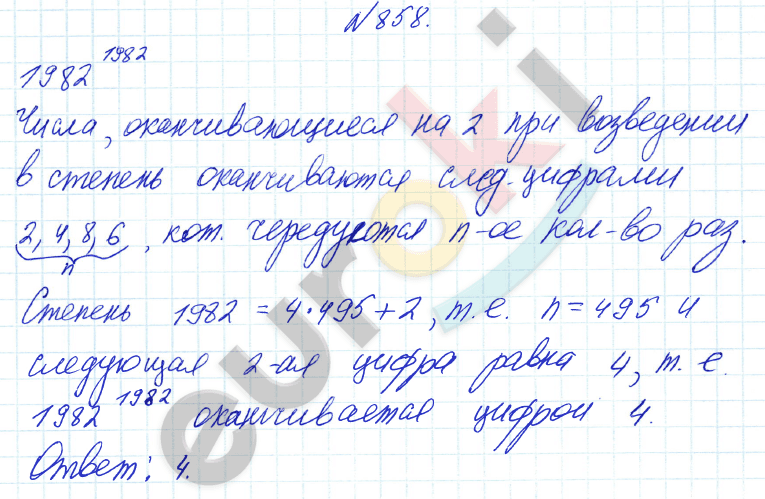 №858.
1982^1982
Числа, оканчивающиеся на 2 при возведении
в степень оканчиваются след. цифрами
2, 4, 8, 6, кот. чередуются n-ое кол-во раз.
n
Степень 1982 = 4·495+2, т.е. n=495 и
следующая 2-ая цифра равна 4, т.е.
1982^1982 оканчивается цифрой 4.
Ответ: 4.
euroki